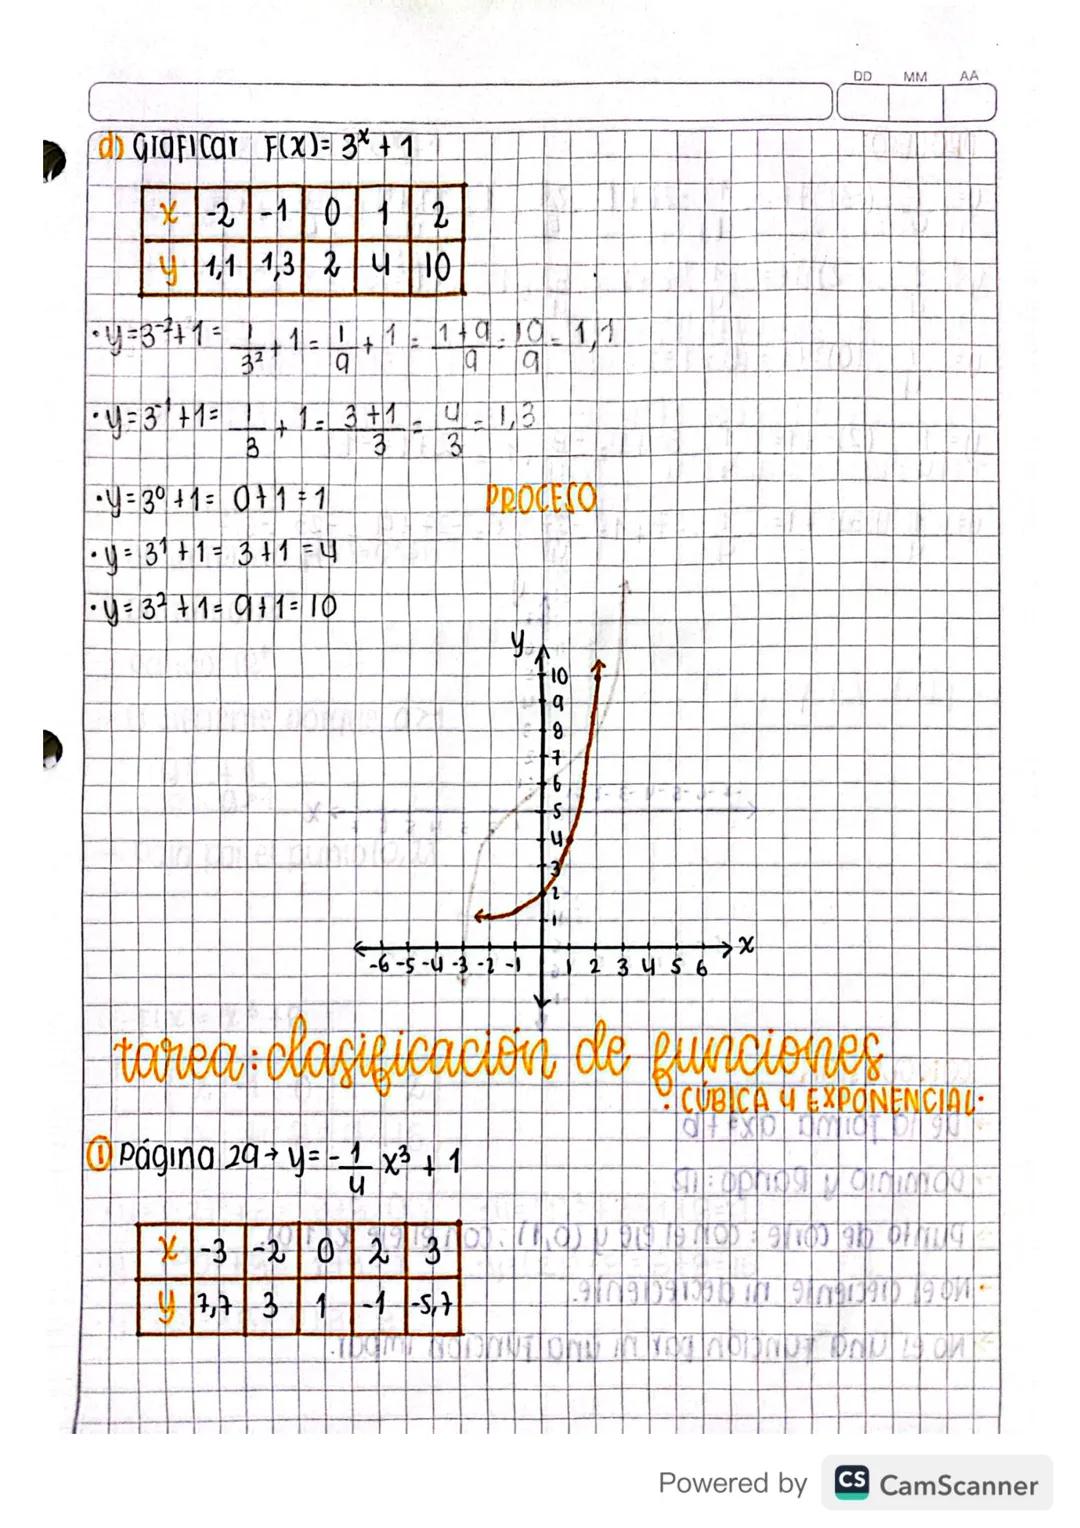 DD MM AA
d) Graficar F(x)= 3ˣ + 1
x -2 -1 0 1 2
y 1,1 1,3 2 4 10
· y=3⁻²+1= 1/3² + 1 = 1/9 + 1 = 1+9/9 = 10/9 = 1,1
· y=3⁻¹+1= 1/3 + 1 = 3+1/3 = 4/3 = 1,3
· y=3⁰+1= 0+1=1 PROCESO
· y=3¹+1= 3+1=4
· y=3²+1= 9+1=10
y
10
9
8
7
6
5
4
3
2
1
x
-6 -5 -4 -3 -2 -1 1 2 3 4 5 6
tarea: clasificación de funciones
· CÚBICA Y EXPONENCIAL·
① Página 29→ y= -1/4 x³ + 1
x -3 -2 0 2 3
y 7,7 3 1 -1 -5,7
Powered by CS CamScanner